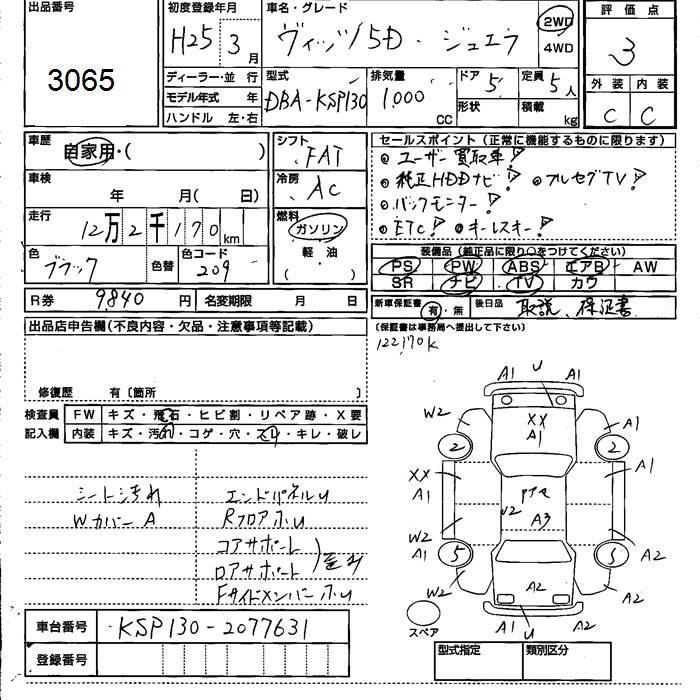 出品番号
3065
初度登録年月
H25 3月
車名・グレード
ヴィッツ 5D・ジュエラ
2WD
4WD
評価点
3
外装 内装
C C
ディーラー・並 行
モデル年式 年
ハンドル 左・右
型式
DBA-KSP130
排気量
1,000 CC
ドア 5
形状
定員 5人
積載 kg
車歴
自家用・( )
車検
年 月( 日)
走行
12万2千170km
色
ブラック
色替
色コード
209
シフト
FAT
冷房
AC
燃料
ガソリン
軽・油
( )
セールスポイント (正常に機能するものに限ります)
ユーザー買取車!
純正HDDナビ! フルセグTV!
バックモニター!
ETC! キーレスキー!
装備品(純正品に限り○をつけてください)
PS PW ABS エアB AW
SR ナビ TV カワ
R券 9840円
名変期限 月 日
新車保証書 有・無
後日品 取説、保証書
(保証書は事務局へ提出して下さい)
出品店申告欄(不良内容・欠品・注意事項等記載)
122,170K
修復歴 有〔箇所 〕
検査員 FW キズ・飛石・ヒビ割・リペア跡・X要
記入欄 内装 キズ・汚れ・コゲ・穴・スレ・キレ・破レ
シート汚れ
Wカバー A
エンドパネルU
Rフロアホ.U
コアサポート
ロアサポート
FサイドメンバーホU
A1 U A1
W2 XX A1 A1
2 2
XX A1
A1
W2 A3
W2
A1 5 5 A2
W2 A2 A2
A1 U A1
スペア
車台番号 KSP130-2077631
登録番号
型式指定 類別区分